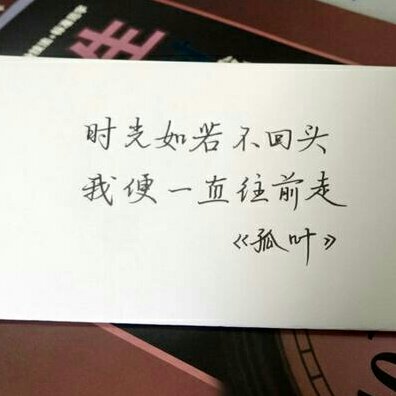 生
时光如若不回头
我便一直往前走
《孤叶》